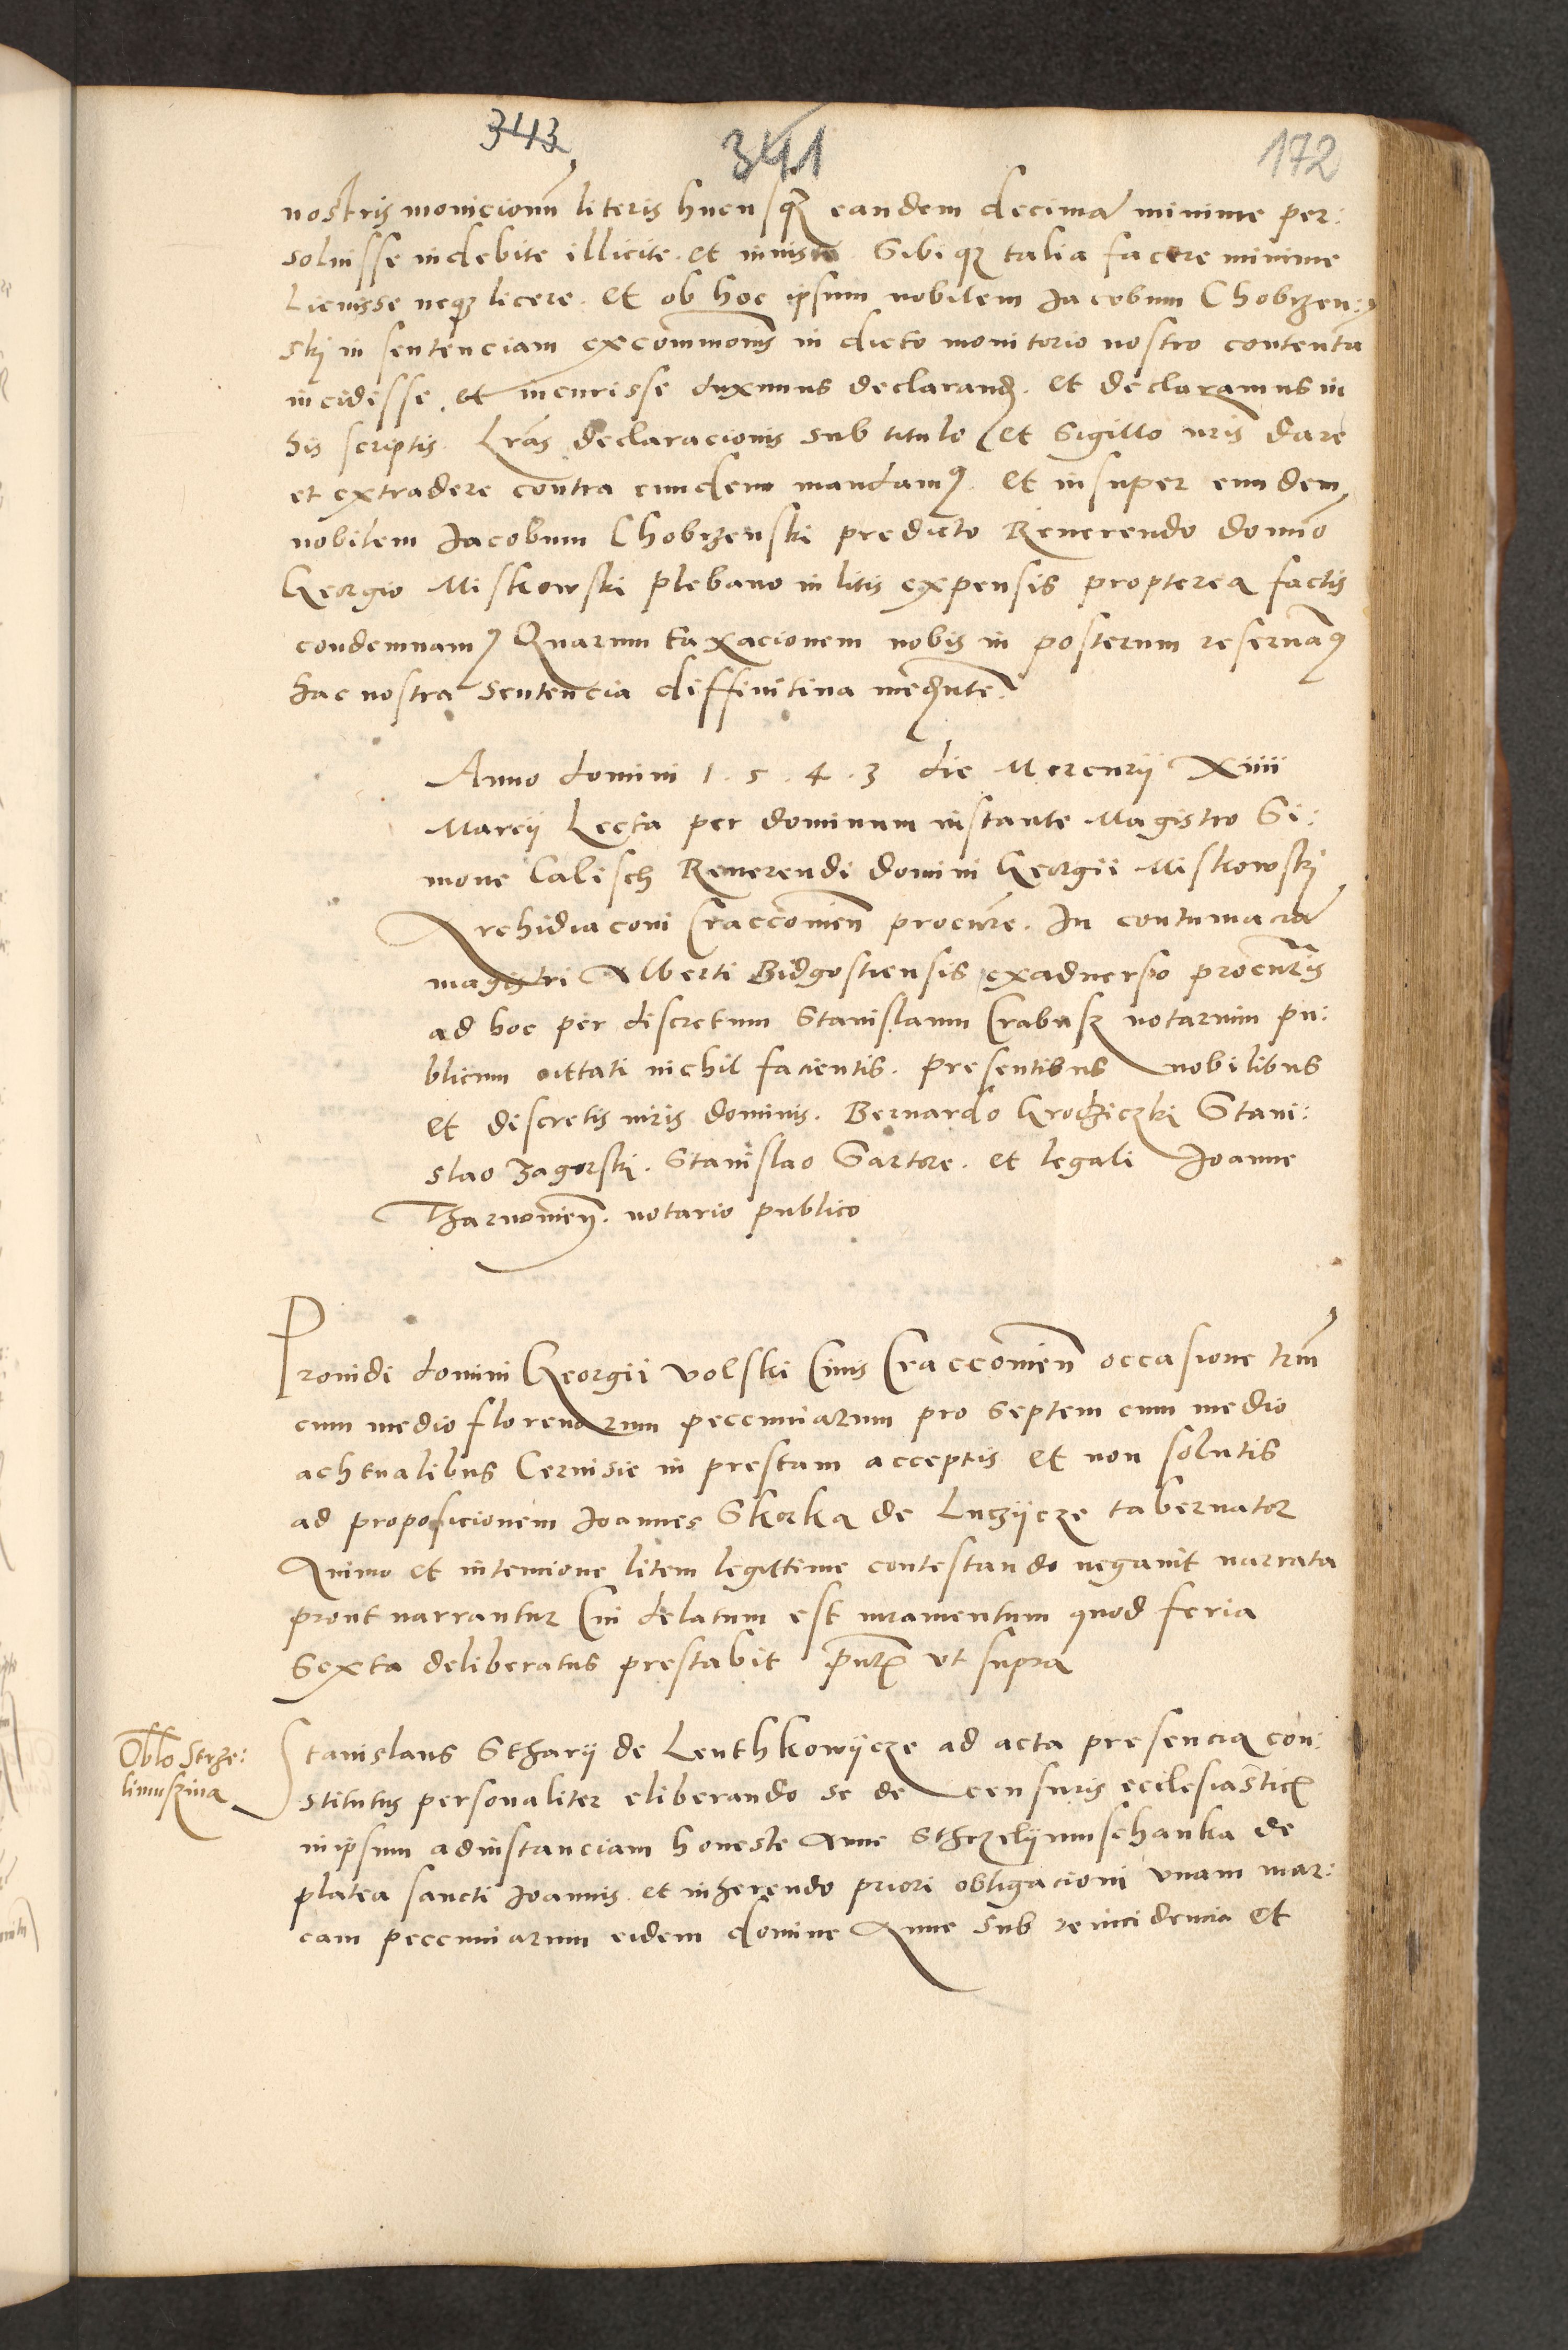 343
341
172
nostris monicionũ literis hucusq̃ eandem decimã minime per:
soluisse indebite illicite et iniuste. Sibiqz talia facere minime
Licuisse neqz licere. Et ob hoc ipsum nobilem Jacobum Chobrzen:
ski in sentenciam excom̃monis in dicto monitorio nostro contentã
incidisse et incurisse duximus declarand. et declaramus in
his scriptis. Lrãs declaracionis sub titulo et Sigillo nris̃ dare
et extradere contra eundem mandamꝰ. Et insuper eundem
nobilem Jacobum Chobrzenski predicto Reuerendo domiõ
Georgio Miskowski plebano in litis expensis propterea factis
condemnamꝰ Quarum taxacionem nobis in posterum reseruãꝰ
hac nostra sentencia diffinitiua med̃nte.
Anno domini 1.5.4.3 die Mercurii Xiiii
Marcii Lecta per dominum instante Magistro Si:
mone Calisch Reuerendi domini Georgii Miskowski
Archidiaconi Craccouieñ procurẽ. In contumaciã
magistri Alberti Bidgostiensis exaduerso procurĩs
ad hoc per discretum Stanislaum Crabusz notarium pu:
blicum cittati nichil facientis. presentibus nobilibus
et discretis viris dominis. Bernardo Grodziczki Stani:
slao Zagorski. Stanislao Sartore. et legali Joanne
Tharnouieñ. notario publico
Prouidi domini Georgii Volski Ciuis Craccouieñ occasione triũ
cum medio florenorum peccuniarum pro septem cum medio
achtualibus Ceruisie in prestam acceptis et non solutis
ad proposicionem Joannes Skorka de Luczijcze tabernator
Animo et intencione litem legittime contestando negauit narrata
prout narrantur Cui delatum est iuramentum quod feria
Sexta deliberatus prestabit pñtꝫ vt supra
Oblõ Strze:
limuszina
Stanislaus Stharij de Lenthkowijcze ad acta presencia con:
stitutus personaliter eliberando se de censuris ecclesiasticꝫ
in ipsum ad instanciam honeste Anne Sthrzelijmuschanka de
platea sancti Joannis et inherendo priori obligacioni vnam mar:
cam peccuniarum eidem domine Anne sub reincidencia et